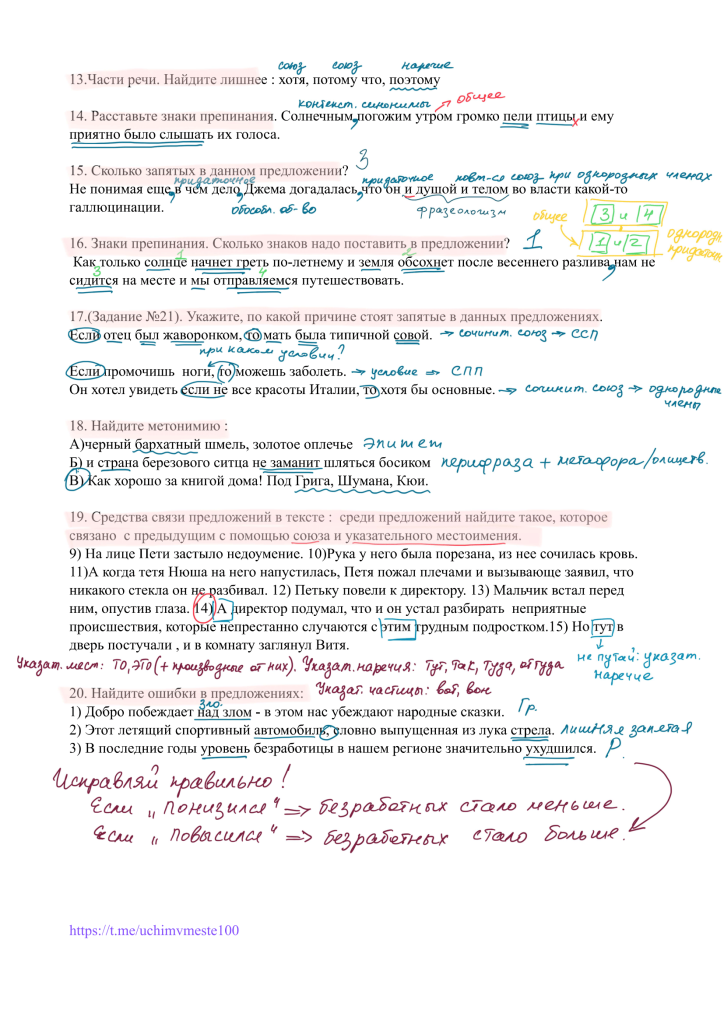 союз союз наречие
13.Части речи. Найдите лишнее : хотя, потому что, поэтому
контекст. синонимы общее
14. Расставьте знаки препинания. Солнечным, погожим утром громко пели птицы и ему
приятно было слышать их голоса.
15. Сколько запятых в данном предложении? 3
придаточное придаточное повт-ся союз при однородных членах
Не понимая еще, в чем дело, Джема догадалась, что он и душой и телом во власти какой-то
галлюцинации. обособл. об-во фразеологизм
общее 3 и 4
16. Знаки препинания. Сколько знаков надо поставить в предложении? 1 1 и 2 однородн придаточн
1 2
Как только солнце начнет греть по-летнему и земля обсохнет после весеннего разлива, нам не
3 4
сидится на месте и мы отправляемся путешествовать.
17.(Задание №21). Укажите, по какой причине стоят запятые в данных предложениях.
Если отец был жаворонком, то мать была типичной совой. → сочинит. союз → ССП
при каком условии?
Если промочишь ноги, то можешь заболеть. → условие → СПП
Он хотел увидеть если не все красоты Италии, то хотя бы основные. → сочинит. союз → однородные
члены
18. Найдите метонимию :
А)черный бархатный шмель, золотое оплечье эпитет
Б) и страна березового ситца не заманит шляться босиком перифраза + метафора/олицетв.
В) Как хорошо за книгой дома! Под Грига, Шумана, Кюи.
19. Средства связи предложений в тексте : среди предложений найдите такое, которое
связано с предыдущим с помощью союза и указательного местоимения.
9) На лице Пети застыло недоумение. 10)Рука у него была порезана, из нее сочилась кровь.
11)А когда тетя Нюша на него напустилась, Петя пожал плечами и вызывающе заявил, что
никакого стекла он не разбивал. 12) Петьку повели к директору. 13) Мальчик встал перед
ним, опустив глаза. 14) А директор подумал, что и он устал разбирать неприятные
происшествия, которые непрестанно случаются с этим трудным подростком.15) Но тут в
дверь постучали , и в комнату заглянул Витя.
не путай: указат.
наречие
Указат. мест: ТО, ЭТО (+ производные от них). Указат. наречия: Тут, Так, Туда, оттуда
20. Найдите ошибки в предложениях: Указат. частицы: вот, вон
зло.
1) Добро побеждает над злом - в этом нас убеждают народные сказки. Гр.
2) Этот летящий спортивный автомобиль, словно выпущенная из лука стрела. лишняя запятая
3) В последние годы уровень безработицы в нашем регионе значительно ухудшился. Р.
Исправляй правильно!
Если „Понизился“ => безработных стало меньше.
Если „Повысился“ => безработных стало больше.
https://t.me/uchimvmeste100